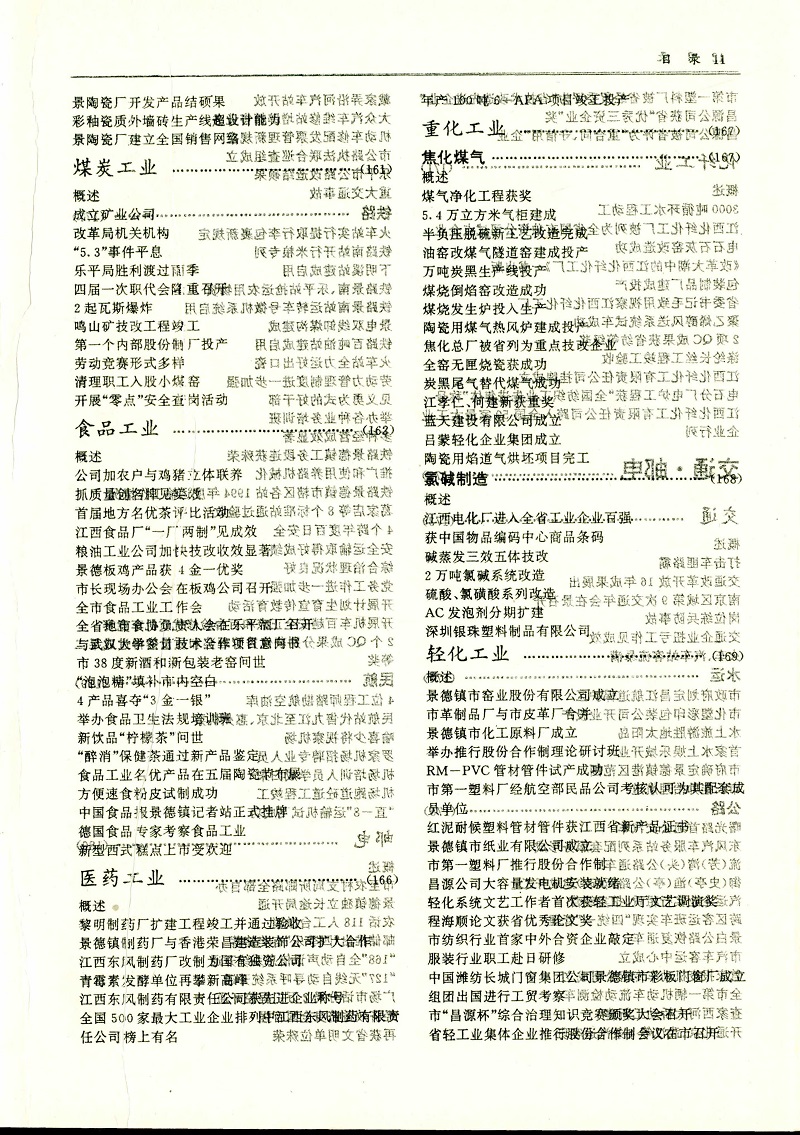 目 录 11
景陶瓷厂开发产品结硕果
彩釉瓷质外墙砖生产线超设计能力
景陶瓷厂建立全国销售网络
煤炭工业 (161)
概述
成立矿业公司
改革局机关机构
“5.3”事件平息
乐平局胜利渡过雨季
四届一次职代会隆重召开
2起瓦斯爆炸
鸣山矿技改工程竣工
第一个内部股份制厂投产
劳动竞赛形式多样
清理职工入股小煤窑
开展“零点”安全查岗活动
食品工业 (163)
概述
公司加农户与鸡猪立体联养
抓质量创招牌见实效
首届地方名优茶评比活动
江西食品厂“一厂两制”见成效
粮油工业公司加快技改收效显著
景德板鸡产品获4金一优奖
市长现场办公会在板鸡公司召开
全市食品工业工作会
全省粮食协负责人会在乐平商工召开
市38度新酒和新包装老窑问世
“泡泡糖”填补市内空白
4产品喜夺“3金一银”
举办食品卫生法规培训班
新饮品“柠檬茶”问世
“醉消”保健茶通过新产品鉴定
食品工业名优产品在五届陶瓷节布展
方便速食粉皮试制成功
中国食品报景德镇记者站正式挂牌
德国食品专家考察食品工业
新型西式糕点上市受欢迎
医药工业 (166)
概述
黎明制药厂扩建工程竣工并通过验收
景德镇制药厂与香港荣昌建造装饰公司扩大合作
江西东风制药厂改制为国有独资公司
青霉素发酵单位再攀新高峰
江西东风制药有限责任公司获先进企业称号
全国500家最大工业企业排列中江西东风制药有限责
任公司榜上有名
年产100吨6—APA项目竣工投产
重化工业 (167)
焦化煤气 (167)
概述
煤气净化工程获奖
5.4万立方米气柜建成
半负压脱硫新工艺改造完成
油窑改煤气隧道窑建成投产
万吨炭黑生产线投产
煤烧倒焰窑改造成功
煤烧发生炉投入生产
陶瓷用煤气热风炉建成投产
焦化总厂被省列为重点技改企业
全窑无匣烧瓷获成功
炭黑尾气替代煤气成功
江季仁、何建新获重奖
蓝天建设有限公司成立
吕蒙轻化企业集团成立
陶瓷用焰道气烘坯项目完工
氯碱制造 (168)
概述
江西电化厂进入全省工业企业百强
获中国物品编码中心商品条码
碱蒸发三效五体技改
2万吨氯碱系统改造
硫酸、氯磺酸系列改造
AC发泡剂分期扩建
深圳银珠塑料制品有限公司
轻化工业 (169)
概述
景德镇市窑业股份有限公司成立
市革制品厂与市皮革厂合并
景德镇市化工原料厂成立
举办推行股份合作制理论研讨班
RM—PVC管材管件试产成功
市第一塑料厂经航空部民品公司考核认可为其配套成
员单位
红泥耐候塑料管材管件获江西省新产品证书
景德镇市纸业有限公司成立
市第一塑料厂推行股份合作制
昌源公司大容量发电机安装就绪
轻化系统文艺工作者首次获轻工业厅文艺调演奖
程海顺论文获省优秀论文奖
市纺织行业首家中外合资企业敲定
服装行业职工赴日研修
中国潍纺长城门窗集团公司景德镇市彩板门窗厂成立
组团出国进行工贸考察
市“昌源杯”综合治理知识竞赛颁奖大会召开
省轻工业集体企业推行股份合作制会议在市召开